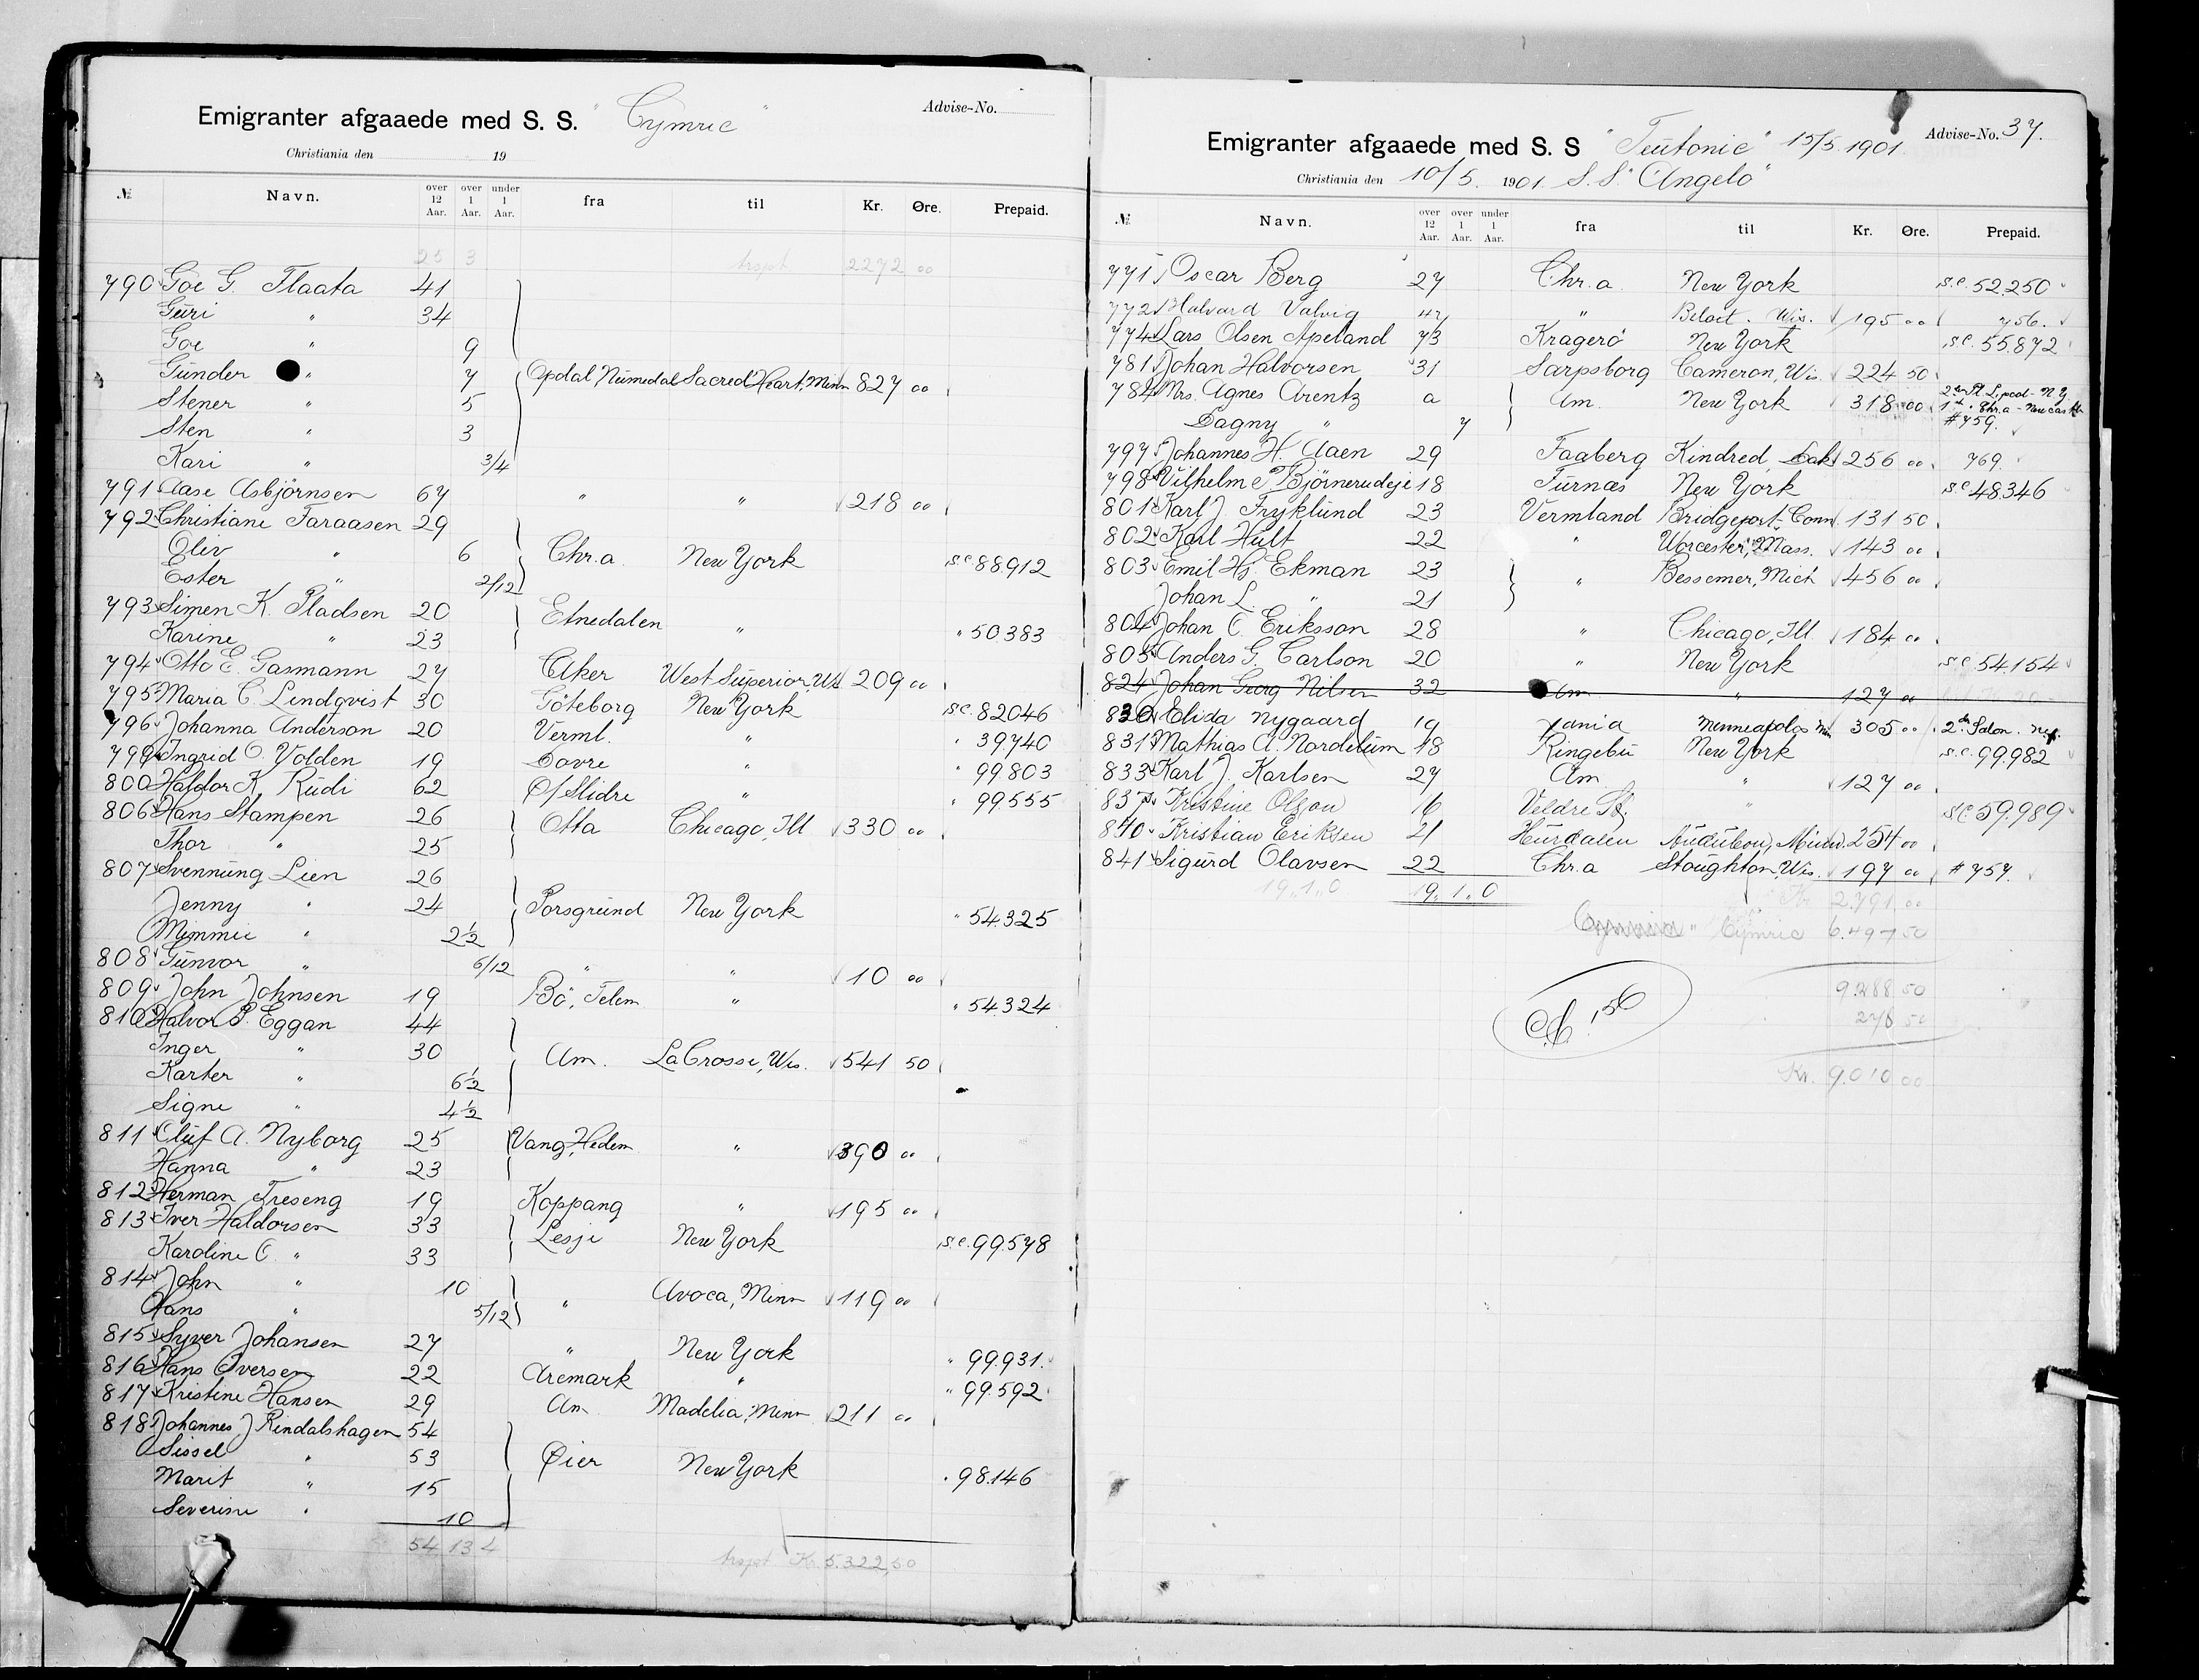 Emigranter afgaaede med S. S. "Cymric"
Advise-No.
Christiania den 19
№ Navn. over 12 Aar. over 1 Aar. under 1 Aar. fra til Kr. Øre. Prepaid.
25 3 trspt 2272 00
790 Goe G. Flaata 41
Guri " 34
Goe " 9
Gunder " 7 Opdal, Numedal Sacred Heart, Minn 827 00
Stener " 5
Sten " 3
Kari " 3/4
791 Aase Asbjörnsen 67 " " 218 00
792 Christiane Faraasen 29
Oliv " 6 Chr.a New York s.c. 88912
Ester " 2/12
793 Simen K. Pladsen 20 Etnedalen " " 50383
Karine " 23
794 Otto E. Gasmann 27 Aker West Superior, Wis 209 00
795 Maria C. Lindqvist 30 Göteborg New York s.c. 82046
796 Johanna Anderson 20 Verml. " " 39740
799 Ingrid O. Volden 19 Dovre " " 99803
800 Haldor K. Rudi 62 Ø/Slidre " " 99555
806 Hans Stampen 26 Otta Chicago, Ill 330 00
Thor " 25
807 Svennung Lien 26
Jenny " 24 Porsgrund New York " 54.325
Mimmie " 2½
808 Gunvor " 6/12 " " 10 00
809 John Johnsen 19 Bö, Telem " " 54.324
810 Halvor P. Eggan 44
Inger " 30 Am. LaCrosse, Wis. 541 50
Karter " 6½
Signe " 4½
811 Oluf A. Nyborg 25 Vang, Hedem " 390 00
Hanna " 23
812 Herman Treseng 19 Koppang " 195 00
813 Iver Haldorsen 33 Lesje New York s.c. 99.578
Karoline O. " 33
814 John " 10 " Avoca, Minn 119 00
Hans " 5/12
815 Syver Johansen 27 " New York " 99.931.
816 Hans Iversen 22 Aremark " " 99.592
817 Kristine Hansen 29 Am Madelia, Minn 211 00
818 Johannes J Rindalshagen 54
Sissel " 53 Øier New York " 98.146
Marit " 15
Severine " 10
54 13 4 trspt Kr. 5.322,50
Emigranter afgaaede med S. S "Teutonic" 15/5 1901
Advise-No. 37.
Christiania den 10/5. 1901. S.S. "Angelo"
№ Navn. over 12 Aar. over 1 Aar. under 1 Aar. fra til Kr. Øre. Prepaid.
771 Oscar Berg 27 Chr.a New York s.c. 52.250
772 Halvard Valvig 47 " Beloit. Wis. 195 00 756.
774 Lars Olsen Apeland 73 Kragerö New York s.c. 55.872
781 Johan Halvorsen 31 Sarpsborg Cameron, Wis. 224 50
784 Mrs. Agnes Arentz a Am. New York 318 00 2den Pl L.pool - N.Y
1st " Chr.a - Newcastle
Dagny " 7 #759.
797 Johannes H. Aaen 29 Faaberg Kindred, Dak 256 00 769.
798 Vilhelm E Björnerudeje 18 Furnæs New York s.c. 48346
801 Karl J. Fryklund 23 Vermland Bridgeport-Conn. 131 50
802 Karl Hult 22 " Worcester, Mass. 143 00
803 Emil Hj. Ekman 23 " Bessemer, Mich 456 00
Johan L. " 21
804 Johan O. Eriksson 28 " Chicago, Ill 184 00
805 Anders G. Carlson 20 " New York s.c. 54.154
824 Johan Georg Nilsen 32 Am " 127 00
830 Elida Nygaard 19 Minneapolis Mn 305 00 2den Salon.
831 Mathias A. Nordelum 18 Ringebu New York s.c. 99.982
833 Karl J. Karlsen 27 Am " 127 00
837 Kristine Olson 16 Veldre " s.c. 59.989
840 Kristian Eriksen 21 Hurdalen Audubon, Minn. 254 00
841 Sigurd Olavsen 22 Chr.a Stoughton, Wis. 197 00 #757.
19. 1. 0 19. 1. 0 Kr 2.791.00
" Cymric 6.497 50
9.288 50
278 50
Kr. 9.010 00